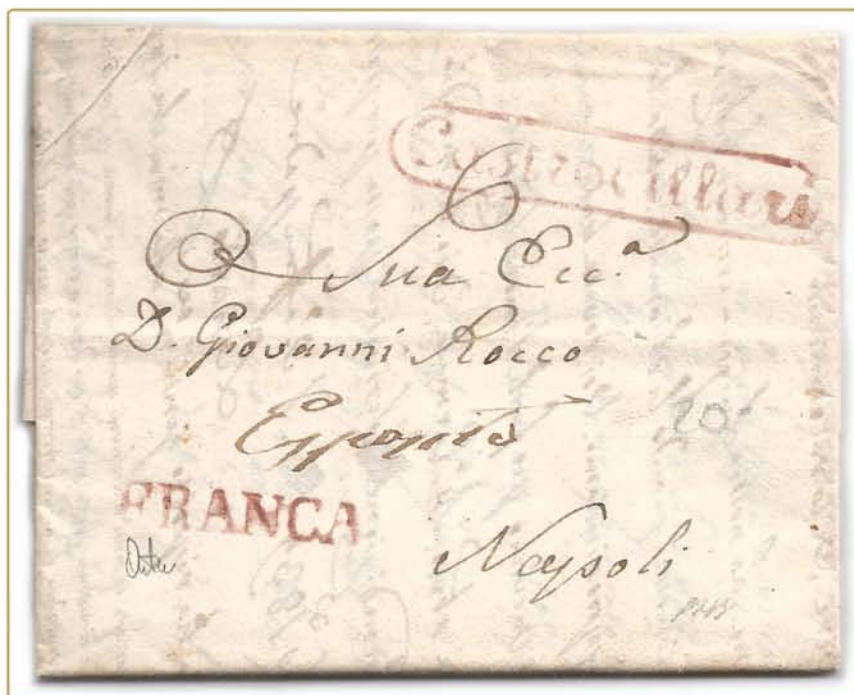 Castrovillari
Sua Ecc.a
D. Giovanni Rocco
20
FRANCA
Napoli